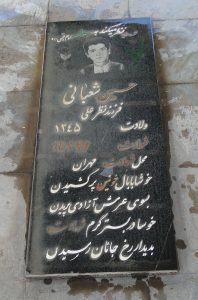 حسین شعبانی
فرزند نظر علی
ولادت ۱۳۴۵
شهادت
محل شهادت مهران
خوشا با بال خونین پر کشیدن
بسوی عرش آزادی پریدن
خوشا در بستر گرم شهادت
بدیدار رخ جانان رسیدن